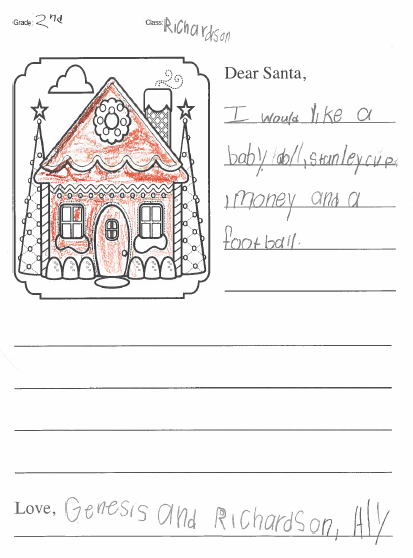 Grade: 2nd Class: Richardson
Dear Santa,
I would like a
baby doll, stanley cup,
money and a
football.
Love, Genesis and Richardson, Aly